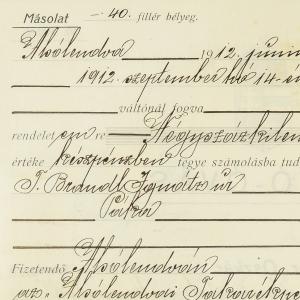 Másolat — 40. fillér bélyeg.
Alsólendva 1912. juniu
1912. szeptember hó 14-én
váltónál fogva
rendelet en re Négyszázkilen
értéke készpénzben tegye számolásba tud
T. Brandl Ignátz úr
Páka
Fizetendő Alsólendván
az „Alsólendvai Takarékpén